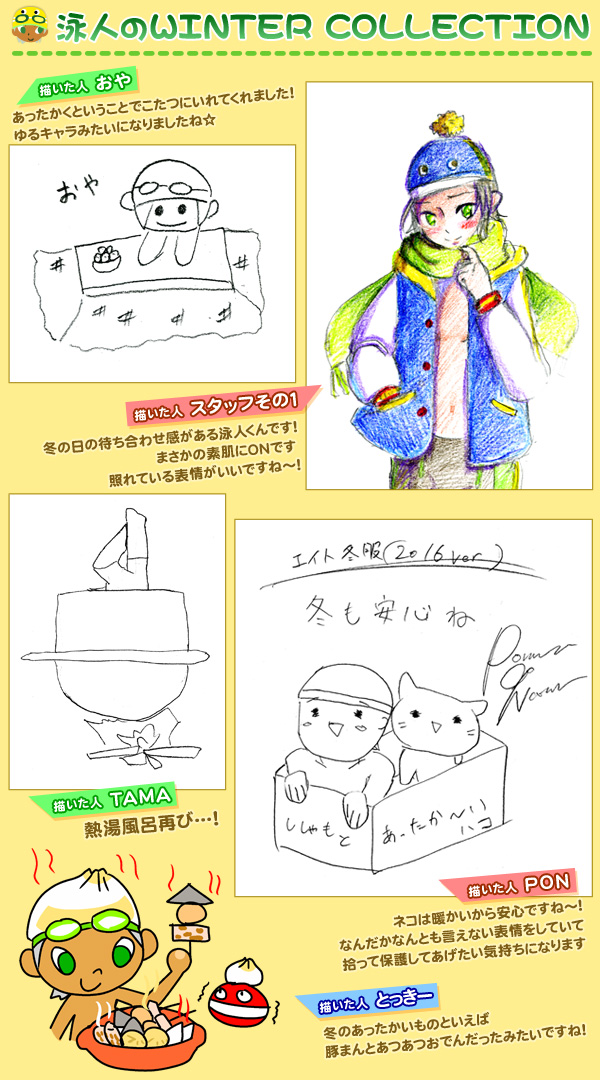 泳人のWINTER COLLECTION
描いた人 おや
あったかくということでこたつにいれてくれました!
ゆるキャラみたいになりましたね☆
おや
描いた人 スタッフその1
冬の日の待ち合わせ感がある泳人くんです!
まさかの素肌にONです
照れている表情がいいですね〜!
エイト冬服(2016ver)
冬も安心ね
ししゃもと
あったか〜い
ハコ
描いた人 TAMA
熱湯風呂再び…!
描いた人 PON
ネコは暖かいから安心ですね〜!
なんだかなんとも言えない表情をしていて
拾って保護してあげたい気持ちになります
描いた人 とっきー
冬のあったかいものといえば
豚まんとあつあつおでんだったみたいですね!